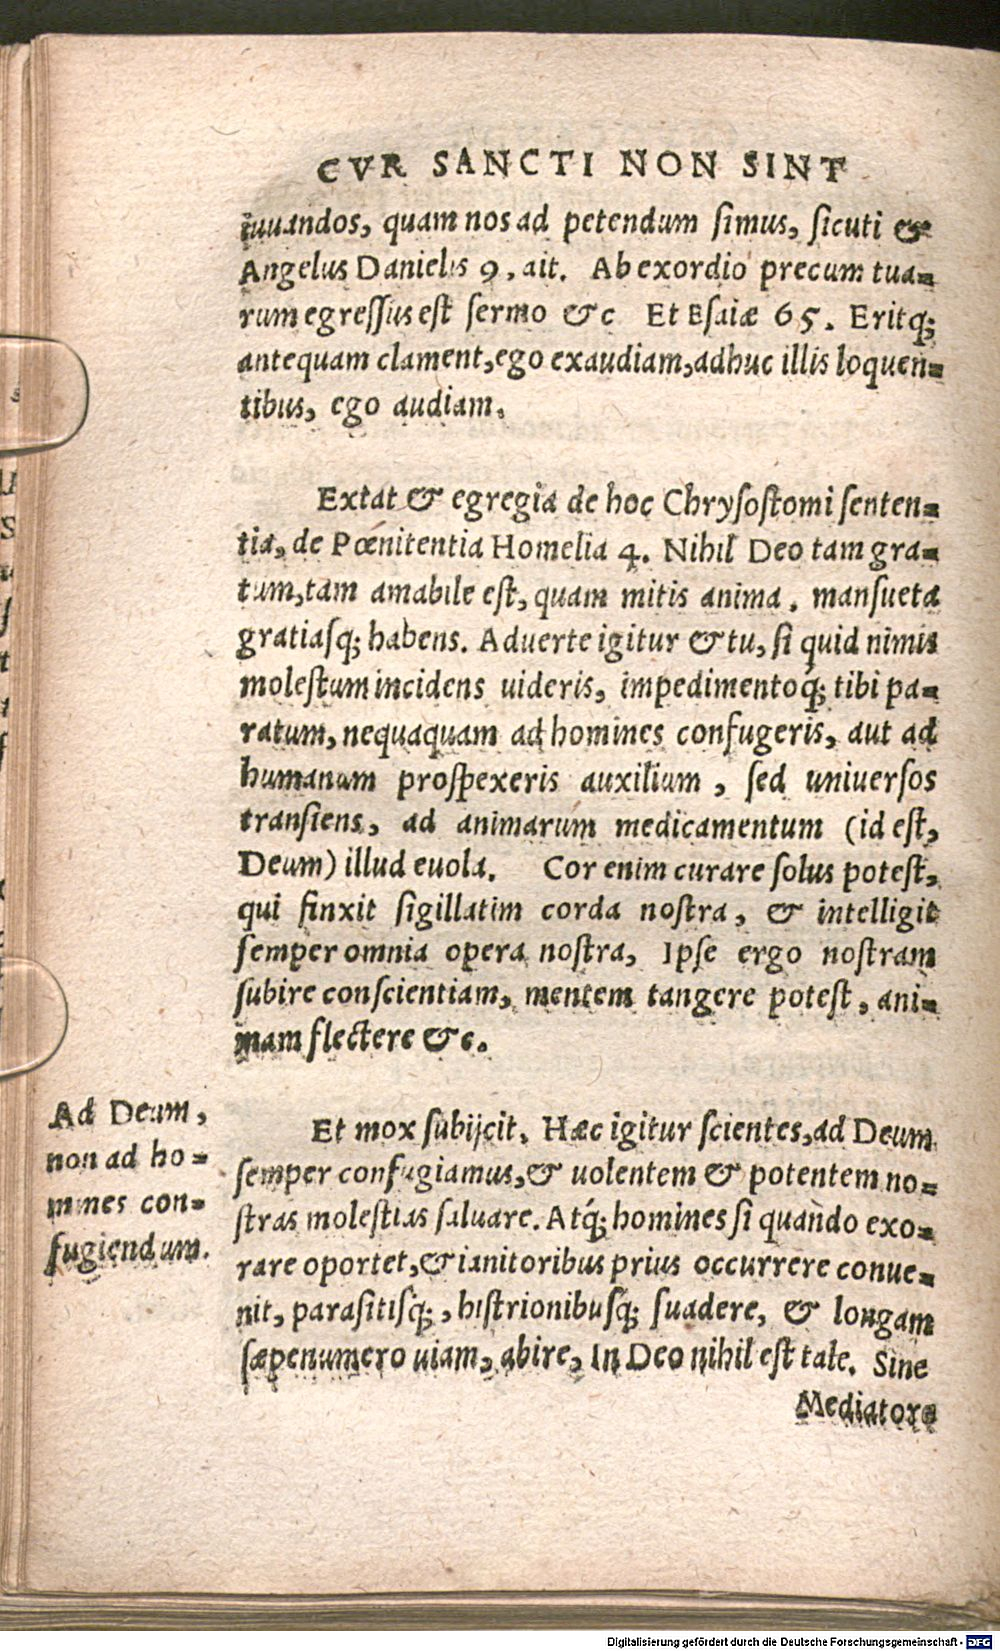 CVR SANCTI NON SINT
iuuandos, quam nos ad petendum simus, sicuti &
Angelus Danielis 9. ait. Ab exordio precum tua=
rum egressus est sermo &c Et Esaiæ 65. Eritq;
antequam clament, ego exaudiam, adhuc illis loquen=
tibus, ego audiam.
Extat & egregia de hoc Chrysostomi senten=
tia, de Pœnitentia Homelia 4. Nihil Deo tam gra=
tum, tam amabile est, quam mitis anima, mansueta
gratiasq; habens. Aduerte igitur & tu, si quid nimis
molestum incidens uideris, impedimentoq́; tibi pa=
ratum, nequaquam ad homines confugeris, aut ad
humanum prospexeris auxilium, sed uniuersos
transiens, ad animarum medicamentum (id est,
Deum) illud euola. Cor enim curare solus potest,
qui finxit sigillatim corda nostra, & intelligit
semper omnia opera nostra, Ipse ergo nostram
subire conscientiam, mentem tangere potest, ani=
mam flectere &c.
Ad Deum,
non ad ho=
mines con=
fugiendum.
Et mox subijcit. Hæc igitur scientes, ad Deum
semper confugiamus, & uolentem & potentem no=
stras molestias saluare. Atq́; homines si quando exo=
rare oportet, & ianitoribus prius occurrere conue=
nit, parasitisq́;, histrionibusq́; suadere, & longam
sæpenumero uiam, abire, In Deo nihil est tale. Sine
Mediatore
Digitalisierung gefördert durch die Deutsche Forschungsgemeinschaft - DFG